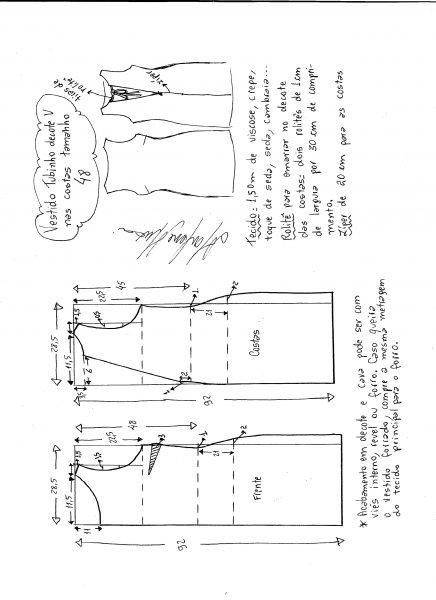 Vestido Tubinho decote V
nas costas tamanho
48
tiras de
rolitê
zíper
Tecido: 1,50m de viscose, crepe,
toque de seda, seda, cambraia...
Rolitê para amarrar no decote
das costas: dois rolitês de 1cm
de largura por 30 cm de compri-
mento.
Zíper de 20 cm para as costas
45
22,5
28,5
11,5
1
2
21
2
Costas
92
48
22,5
28,5
11,5
11
3
1
2
21
Frente
92
* Acabamento em decote e cava pode ser com
viés interno, revel ou forro. Caso queira
o vestido forrado, compre a mesma metragem
do tecido principal para o forro.